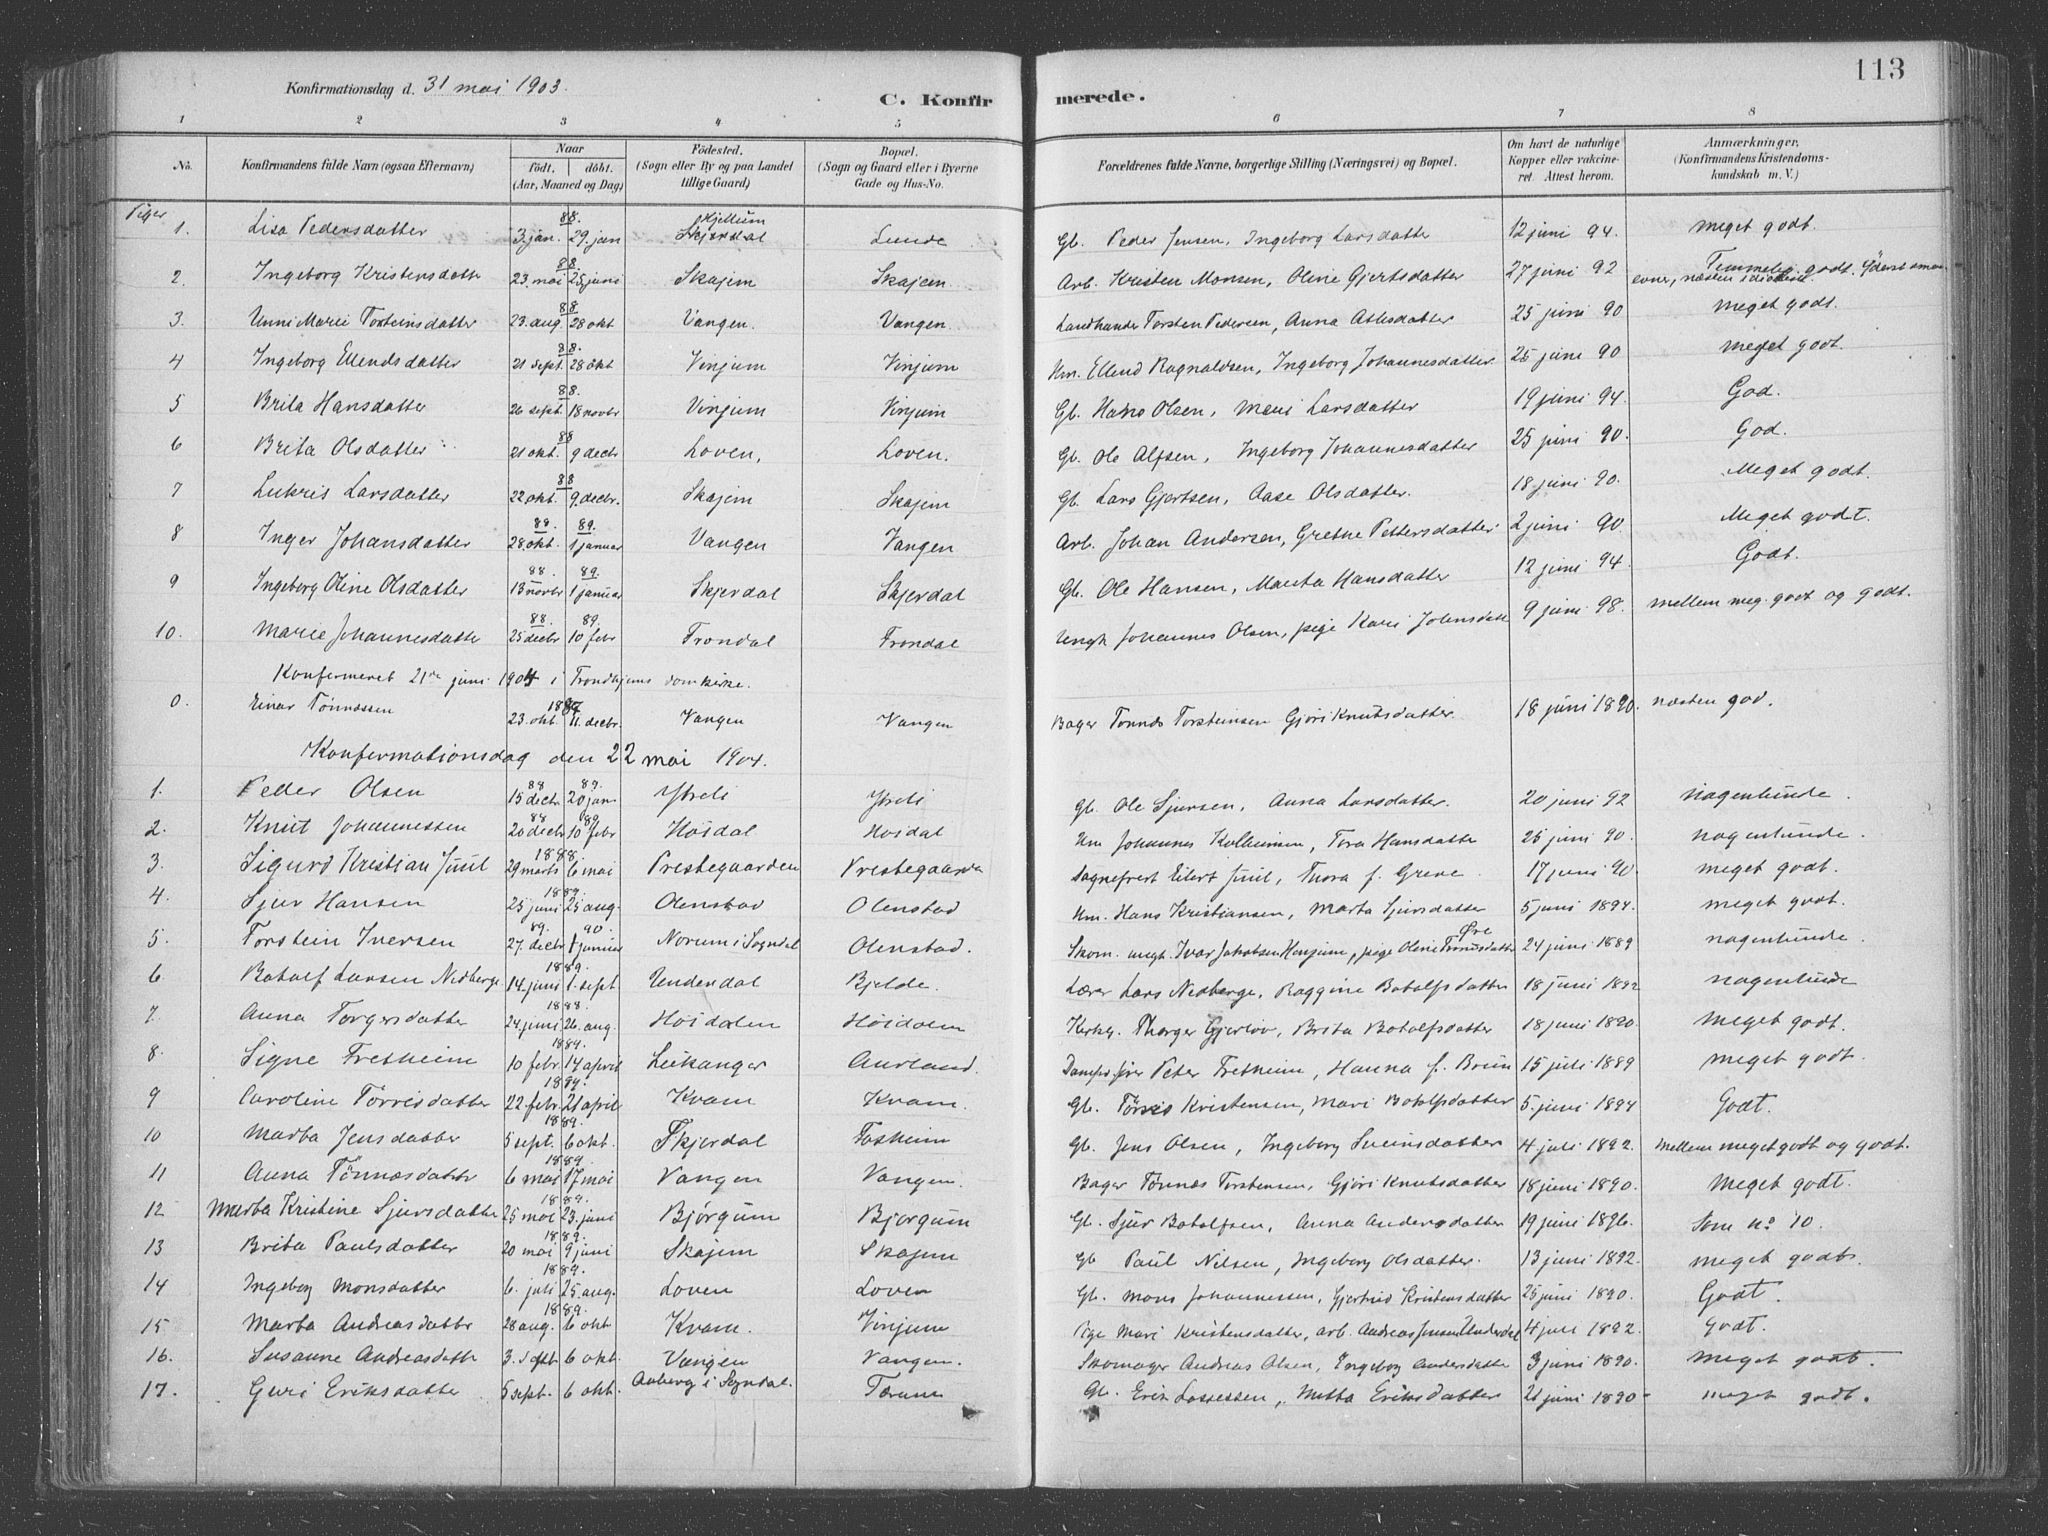 113
Konfirmationsdag d. 31 mai 1903.
C. Konfirmerede.
1 2 3 4 5 6 7 8
No. Konfirmandens fulde Navn (ogsaa Efternavn) Naar født. døbt. (Aar, Maaned og Dag) Födested. (Sogn eller By og paa Landet tillige Gaard) Bopæl. (Sogn og Gaard eller i Byerne Gade og Hus-No. Forældrenes fulde Navne, borgerlige Stilling (Næringsvei) og Bopæl. Om havt de naturlige Kopper eller vaccineret. Attest herom. Anmærkninger. (Konfirmandens Kristendomskundskab m. V.)
Piger
1. Lisa Pedersdatter 88. 3. jan. 29. jan Skjerdal Lunde Gb. Peder Jensen, Ingeborg Larsdatter 12 juni 94. meget godt.
2. Ingeborg Kristensdatte 88 23. mai 25. juni Skajem Skajem Arb. Kristen Monsen, Oline Gjertsdatter 27 juni 92 Temmelig godt.
3. Unni Marie Torsteinsdatter 88 23. aug. 28 okt Vangen. Vangen Landhandl Torsten Pedersen, Anna Atlesdatter 25 juni 90 meget godt.
4 Ingeborg Ellendsdatter 88. 21 sept. 28 okt Vinjum Vinjum Km. Ellend Ragnaldsen, Ingeborg Johannesdatter 25 juni 90 meget godt.
5 Brita Hansdatter 88. 26 sept. 18 novbr Vinjum Vinjum Gb. Hans Olsen, Mari Larsdatter 19 juni 94. God.
6 Brita Olsdatter 88 21 okt. 9 decbr Loven, Loven. Gb. Ole Alfsen, Ingeborg Johannesdatter 25 juni 90. God.
7 Lukris Larsdatter 88 22 okt. 9. decbr. Skajem Skajem Gb. Lars Gjertsen, Aase Olsdatter. 18 juni 90. Meget godt
8 Inger Johansdatter 88. 89. 28. okt. 1 januar Vangen Vangen Arb. Johan Andersen, Grethe Pettersdatter 2 juni 90. Meget godt.
9 Ingeborg Oline Olsdatter 88. 89. 13 novbr 1 januar Skjerdal Skjerdal Gb. Ole Hansen, Marita Hansdatter 12 juni 94. Godt.
10. Marie Johannesdatte 88. 89. 25 decbr 10 febr Frondal Frondal Ungk Johannes Olsen, pige Kari Johnsdatt 9 juni 98. mellem meg. godt og godt.
Konfermeret 21de juni 1904 i Trondhjems domkirke.
0. Einar Tönnessen 1887 23. okt. 11. decbr. Vangen Vangen Bager Tönnes Torsteinsen Gjöri Knutsdatter. 18 juni 1890. næsten god.
Konfermationsdag den 22 mai 1904.
1. Peder Olsen 88 89. 15 decbr 20 jan. Ytreli Ytreli Gb. Ole Sjursen, Anna Larsdatter. 20 juni 92 nogenlunde.
2. Knut Johannessen 88 89 20 decbr 10 febr Höidal Höidal Km Johannes Kolbeinsen, Tora Hansdatte 25 juni 90. nogenlunde.
3. Sigurd Kristian Juul 1888 29 marts 6 mai Prestegaarden Prestegaarden Sognefrest Eilert Juul, Thora f. Greve. 17 juni 90 meget godt.
4. Sjur Hansen 1889. 25 juni 25 aug. Olenstad Olenstad Km. Hans Kristiansen, Marta Sjursdatter 5 juni 1894. meget godt.
5. Torstein Iversen 89. 90. 27. decbr 1 januar Norum i Sogndal Olenstad. Skom. ungk. Ivar Jakobsen Husjum, pige Oline Tönnesdatter Øre 24 juni 1889 nogenlunde.
6 Botolf Larsen Nedberge 1889. 14. juni 1. sept Undendal Bjelde. Lærer Lars Nedberge, Raggine Botolfsdatter 18 juni 1892 nogenlunde
7. Anna Torgersdatter 1888. 24. juni 26. aug. Höidalen Höidalen Kirksg. Thorger Gjerløv, Brita Botolfsdatter 18 juni 1890. meget godt.
8. Signe Fretheim 1889. 10 febr. 14 april Leikanger Aurland. Dampsfører Peter Fretheim, Hanna f. Brun 15 juli 1889 meget godt.
9 Caroline Törresdatter 1889. 22 febr. 21 april Kvam Kvam. Gb. Törris Kristensen, Mari Botolfsdatter 5. juni 1894 Godt.
10 Marta Jensdatter 1889. 5 sept. 6 okt. Skjerdal Fosheim Gb. Jens Olsen, Ingeborg Sveinsdatter 4 juli 1892. mellem meget godt og godt.
11 Anna Tönnesdatter 1889. 6 mai 17 mai Vangen Vangen. Bager Tönnes Torstensen, Gjöri Knutsdatter 18 juni 1890. Meget godt.
12 Marta Kristine Sjursdatter 1889. 25 mai 23. juni Bjørgum Bjorgum Gb. Sjur Botolfsen, Anna Andersdatter 19 juni 1896. Som no 10.
13 Brita Paulsdatter 1889. 20 mai 9 juni Skajem Skajem Gb Paul Nilsen, Ingeborg Olsdatter. 13 juni 1892. meget godt.
14 Ingeborg Monsdatter 1889. 6. juli 25. aug. Loven Loven Gb. Mons Johannessen, Gjertrud Kristensdatter 25 juni 1890. Godt.
15 Marta Andreasdatter 1889. 28 aug. 6 okt Kvam. Vinjum Pige Mari Kristensdatter, arb. Andreas Jensen Underdal 4 juli 1892. Godt.
16. Susanne Andreasdatte 3. sept 6 okt. Vangen Vangen. Skomager Andreas Olsen, Ingeborg Andersdatte 3 juni 1890. meget godt.
17. Guri Eriksdatter 5 sept. 6 okt. Aaberg i Sogndal. Terum Gb. Erik Lassessen, Mitta Eriksdatter 21 juni 1890 meget godt.